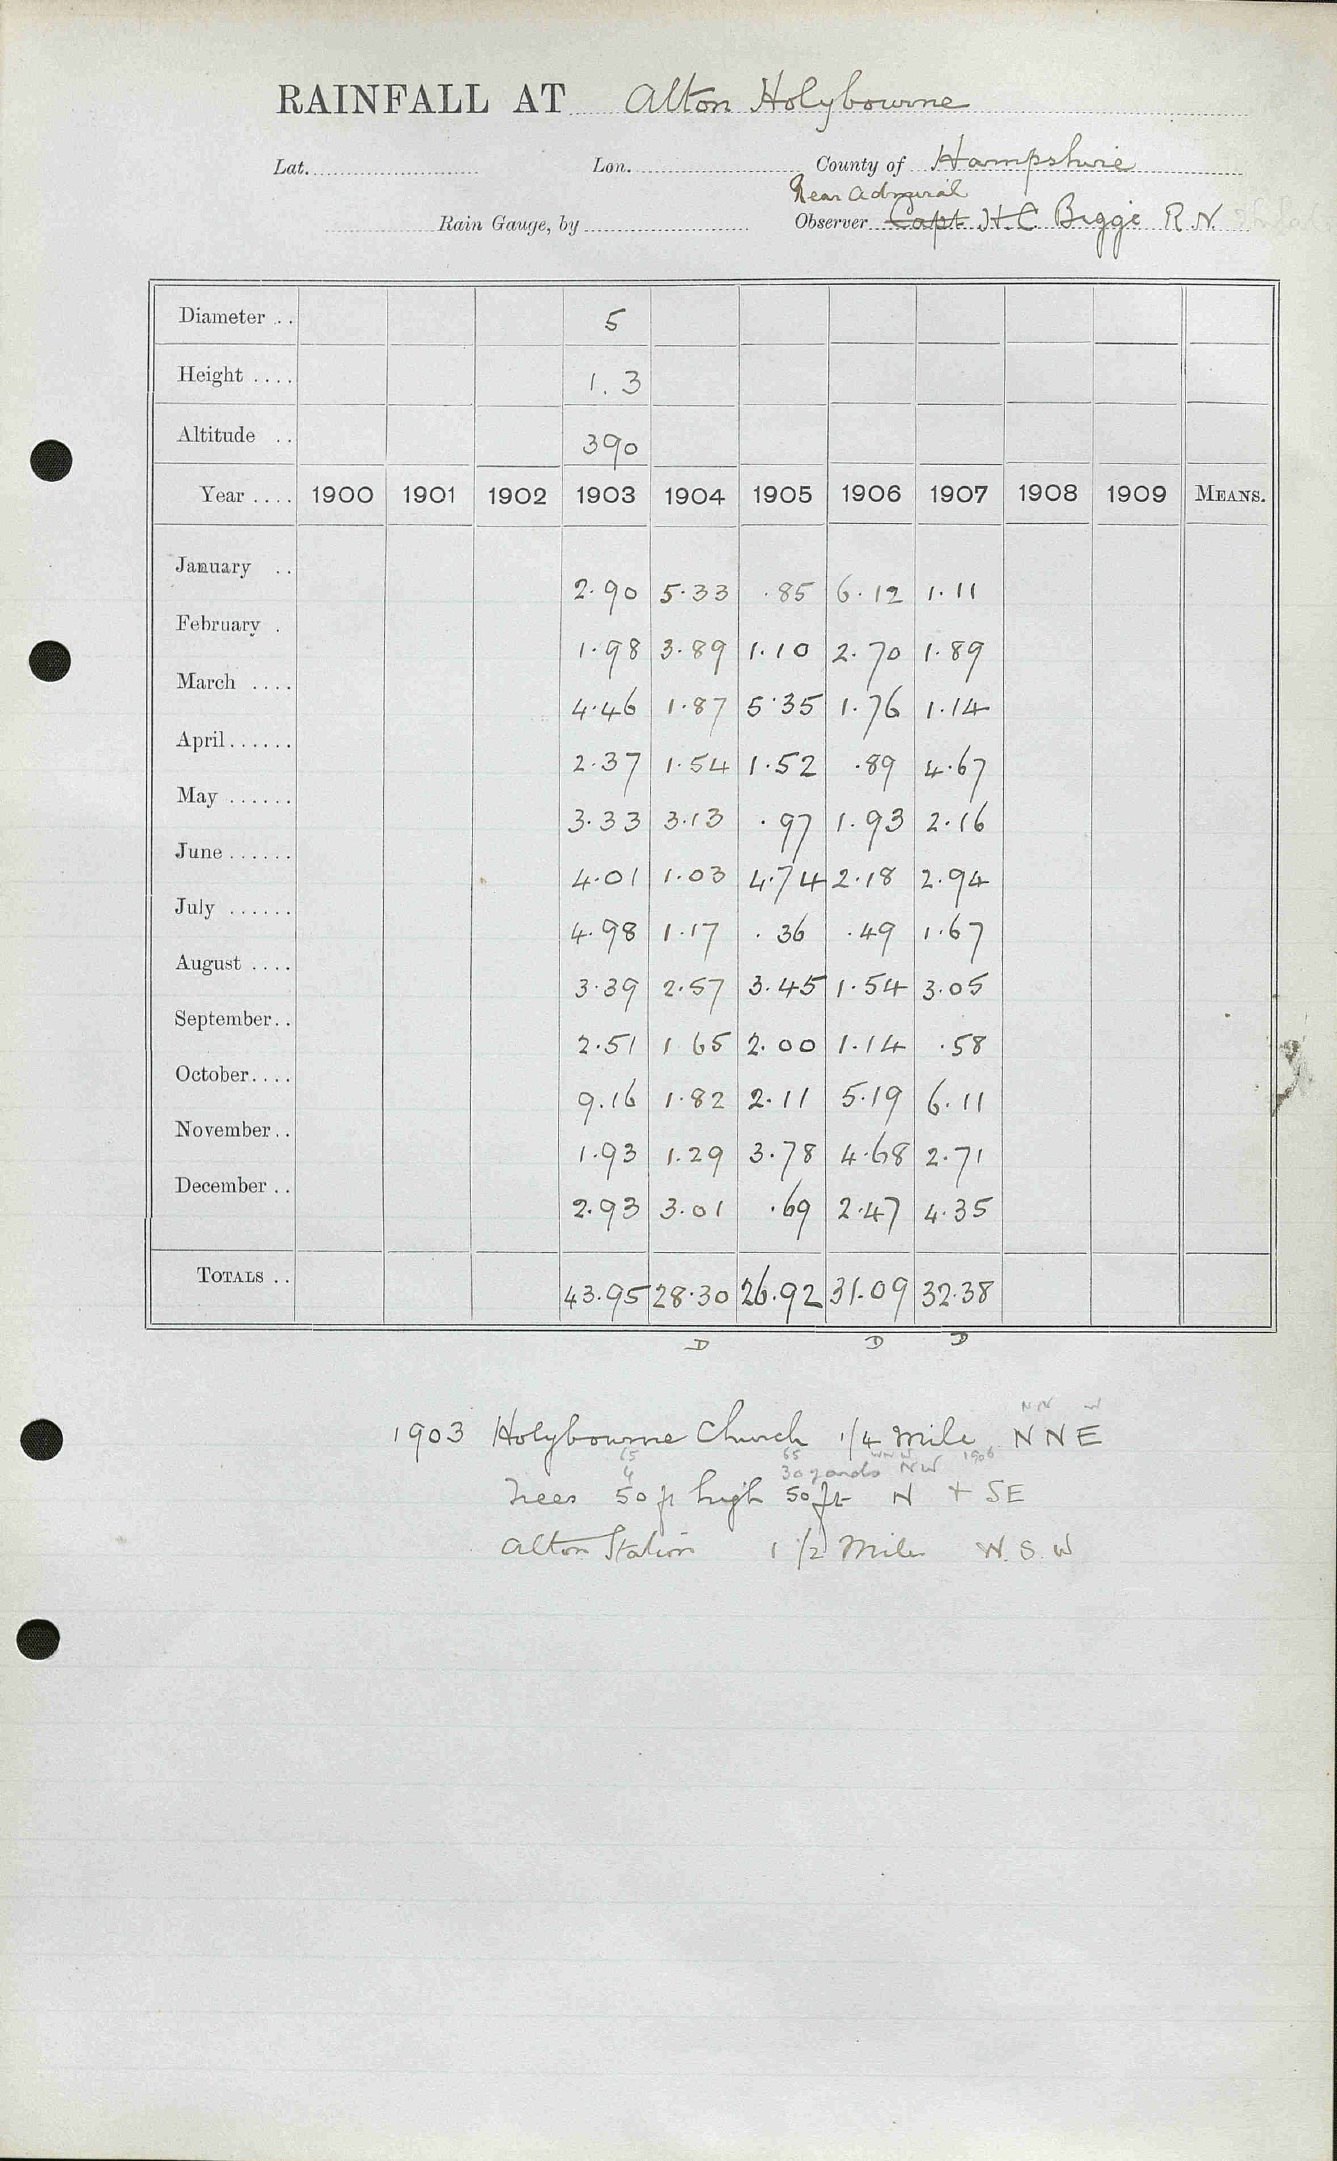 RAINFALL AT Alton Holybourne
Lat. Lon. County of Hampshire
Rear Admiral
Rain Gauge, by Observer Capt H. C. Bigge R N.
Diameter .. 5
Height .... 1. 3
Altitude .. 390
Year .... 1900 1901 1902 1903 1904 1905 1906 1907 1908 1909 MEANS.
January .. 2.90 5.33 .85 6.12 1.11
February . 1.98 3.89 1.10 2.70 1.89
March .... 4.46 1.87 5.35 1.76 1.14
April...... 2.37 1.54 1.52 .89 4.67
May ...... 3.33 3.13 .97 1.93 2.16
June ...... 4.01 1.03 4.74 2.18 2.94
July ...... 4.98 1.17 .36 .49 1.67
August .... 3.39 2.57 3.45 1.54 3.05
September.. 2.51 1 65 2.00 1.14 .58
October.... 9.16 1.82 2.11 5.19 6.11
November.. 1.93 1.29 3.78 4.68 2.71
December .. 2.93 3.01 .69 2.47 4.35
TOTALS .. 43.95 28.30 26.92 31.09 32.38
D D D
NN W
1903 Holybourne Church 1/4 mile N N E
65 65 WNW
4 30 yards NW 1906
Trees 50 ft high 50 ft N + SE
Alton Station 1 1/2 Mile W. S. W